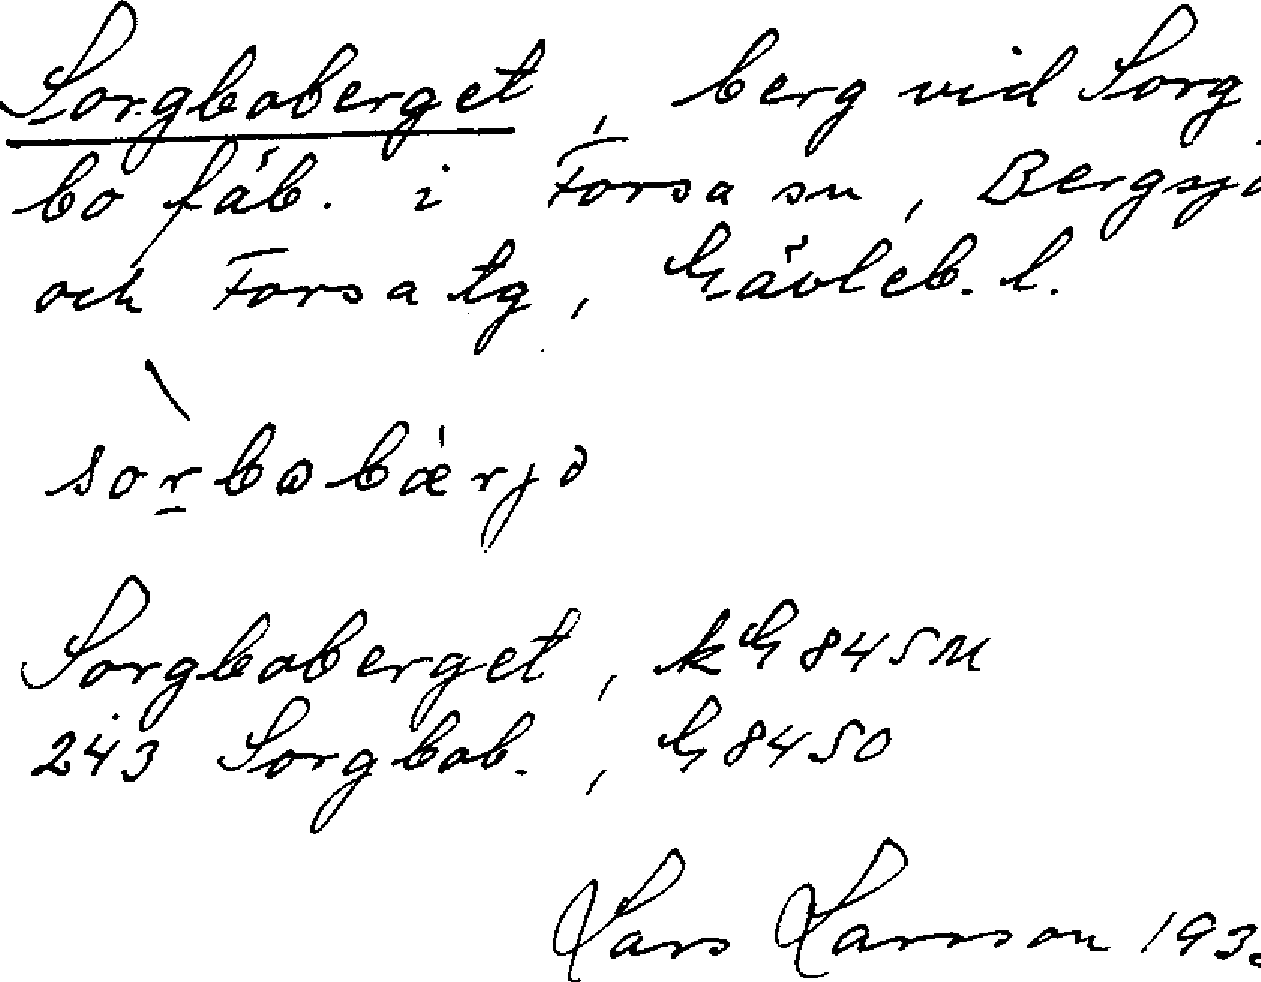 Sorgboberget, berg vid Sorg
bo fäb. i Forsa sn, Bergsjö
och Forsa tg, Gävleb. l.
sorbobærjə
Sorgboberget, kG 845M
243 Sorgbob., G 8450
Lars Larsson 193